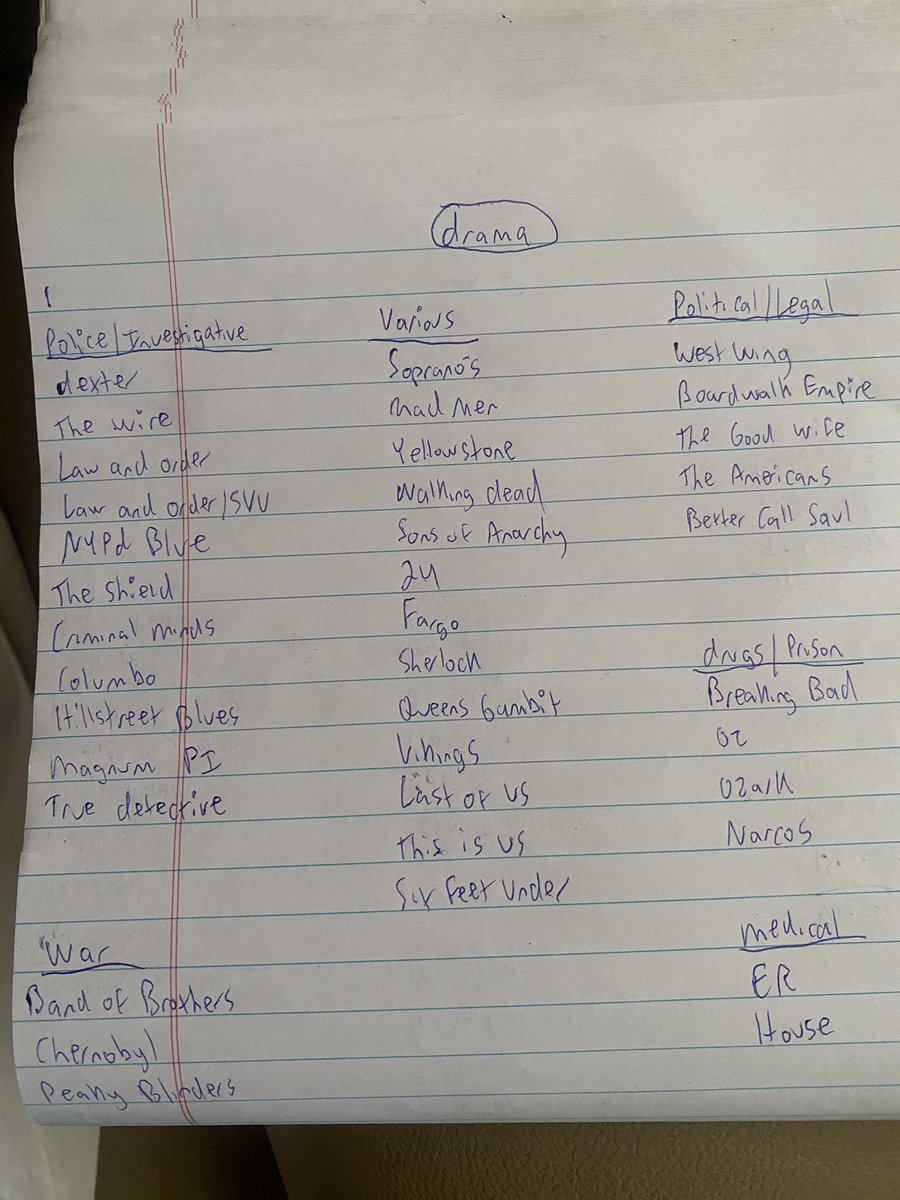 drama
1
Police/Investigative
dexter
The wire
Law and order
Law and order/SVU
NYPd Blue
The Shield
Criminal minds
Columbo
Hillstreet Blues
Magnum PI
True detective
War
Band of Brothers
Chernobyl
Peaky Blinders
Various
Soprano's
Mad Men
Yellowstone
Walking dead
Sons of Anarchy
24
Fargo
Sherlock
Queens Gambit
Vikings
Last of us
this is us
Six Feet Under
Political/Legal
West Wing
Boardwalk Empire
The Good wife
The Americans
Better Call Saul
drugs/Prison
Breaking Bad
Oz
Ozark
Narcos
medical
ER
House